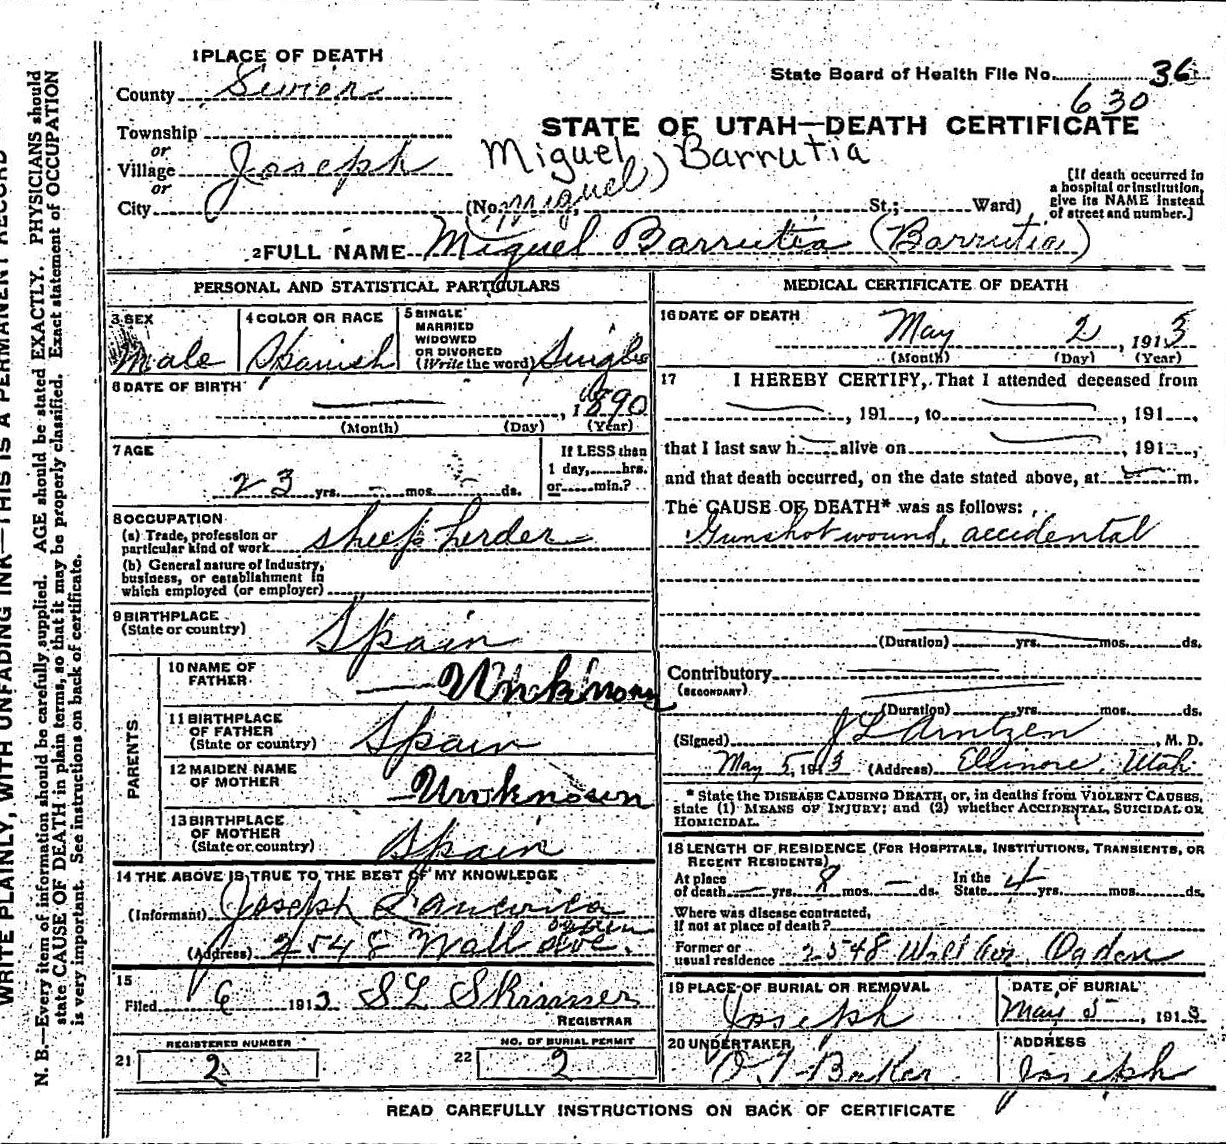 WRITE PLAINLY, WITH UNFADING INK—THIS IS A PERMANENT RECORD
N. B.—Every item of information should be carefully supplied. AGE should be stated EXACTLY. PHYSICIANS should
state CAUSE OF DEATH in plain terms, so that it may be properly classified. Exact statement of OCCUPATION
is very important. See instructions on back of certificate.
1 PLACE OF DEATH
County Sevier
State Board of Health File No. 36
630
STATE OF UTAH—DEATH CERTIFICATE
Township
or
Village Joseph
or
City
Miguel Barrutia
(No. Miguel) St.; Ward)
[If death occurred in
a hospital or institution,
give its NAME instead
of street and number.]
2 FULL NAME Miguel Barrutia (Barrutia)
PERSONAL AND STATISTICAL PARTICULARS
3 SEX
Male
4 COLOR OR RACE
Spanish
5 SINGLE
MARRIED
WIDOWED
OR DIVORCED
(Write the word) Single
6 DATE OF BIRTH
, 1890
(Month) (Day) (Year)
7 AGE
23 yrs. - mos. - ds.
If LESS than
1 day, hrs.
or min.?
8 OCCUPATION
(a) Trade, profession or
particular kind of work sheep herder
(b) General nature of Industry,
business, or establishment in
which employed (or employer)
9 BIRTHPLACE
(State or country) Spain
PARENTS
10 NAME OF
FATHER Unknown
11 BIRTHPLACE
OF FATHER
(State or country) Spain
12 MAIDEN NAME
OF MOTHER Unknown
13 BIRTHPLACE
OF MOTHER
(State or country) Spain
14 THE ABOVE IS TRUE TO THE BEST OF MY KNOWLEDGE
(Informant) Joseph
Ogden
(Address) 2548 Wall Ave.
15
Filed 6 1913 S L Skinner
REGISTRAR
21 REGISTERED NUMBER
2
22 NO. OF BURIAL PERMIT
2
MEDICAL CERTIFICATE OF DEATH
16 DATE OF DEATH
May 2, 1913
(Month) (Day) (Year)
17 I HEREBY CERTIFY, That I attended deceased from
, 191 , to , 191 ,
that I last saw h alive on , 191 ,
and that death occurred, on the date stated above, at m.
The CAUSE OF DEATH* was as follows:
Gunshot wound, accidental
(Duration) yrs. mos. ds.
Contributory
(SECONDARY)
(Duration) yrs. mos. ds.
(Signed) J L Arntzen, M. D.
May 5, 1913 (Address) Ellinore, Utah
* State the DISEASE CAUSING DEATH, or, in deaths from VIOLENT CAUSES,
state (1) MEANS OF INJURY; and (2) whether ACCIDENTAL, SUICIDAL OR
HOMICIDAL.
18 LENGTH OF RESIDENCE (FOR HOSPITALS, INSTITUTIONS, TRANSIENTS, OR
RECENT RESIDENTS)
At place
of death — yrs. 8 mos. — ds. In the
State 4 yrs. mos. ds.
Where was disease contracted,
if not at place of death?
Former or
usual residence 2548 Wall Ave. Ogden
19 PLACE OF BURIAL OR REMOVAL
Joseph
DATE OF BURIAL
May 5, 1913
20 UNDERTAKER
Baker
ADDRESS
Joseph
READ CAREFULLY INSTRUCTIONS ON BACK OF CERTIFICATE